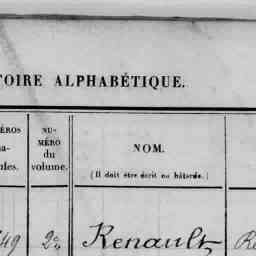 TOIRE ALPHABÉTIQUE.
ÉROS
NU-
MÉRO
du
volume.
a-
ules.
NOM.
(Il doit être écrit en bâtarde.)
49
2
Renault
Re